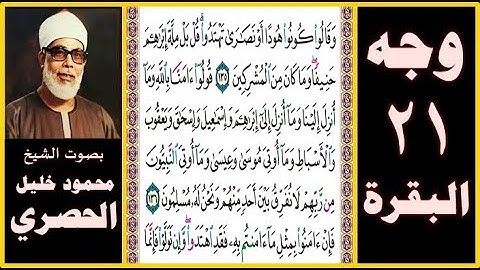 وجه
٢١
البقرة
وَقَالُوا۟ كُونُوا۟ هُودًا أَوْ نَصَـٰرَىٰ تَهْتَدُوا۟ ۗ قُلْ بَلْ مِلَّةَ إِبْرَٰهِـۧمَ
حَنِيفًا ۖ وَمَا كَانَ مِنَ ٱلْمُشْرِكِينَ ١٣٥ قُولُوٓا۟ ءَامَنَّا بِٱللَّهِ وَمَآ
أُنزِلَ إِلَيْنَا وَمَآ أُنزِلَ إِلَىٰٓ إِبْرَٰهِـۧمَ وَإِسْمَـٰعِيلَ وَإِسْحَـٰقَ وَيَعْقُوبَ
وَٱلْأَسْبَاطِ وَمَآ أُوتِىَ مُوسَىٰ وَعِيسَىٰ وَمَآ أُوتِىَ ٱلنَّبِيُّونَ
مِن رَّبِّهِمْ لَا نُفَرِّقُ بَيْنَ أَحَدٍ مِّنْهُمْ وَنَحْنُ لَهُۥ مُسْلِمُونَ ١٣٦
فَإِنْ ءَامَنُوا۟ بِمِثْلِ مَآ ءَامَنتُم بِهِۦ فَقَدِ ٱهْتَدَوا۟ ۖ وَّإِن تَوَلَّوْا۟ فَإِنَّمَا
بصوت الشيخ
محمود خليل
الحصري